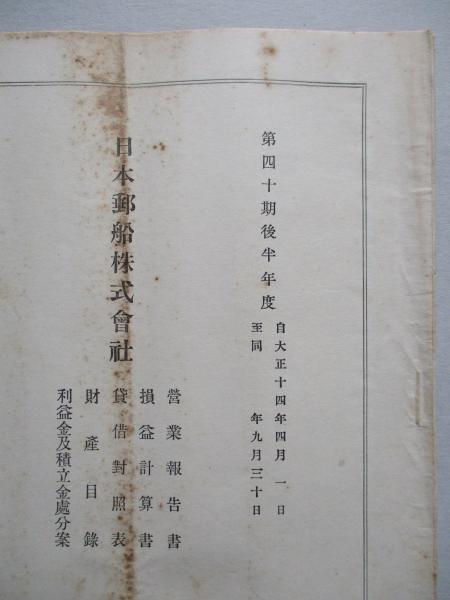 第四十期後半年度
自大正十四年四月一日
至同年九月三十日
日本郵船株式會社
營業報告書
損益計算書
貸借對照表
財產目錄
利益金及積立金處分案